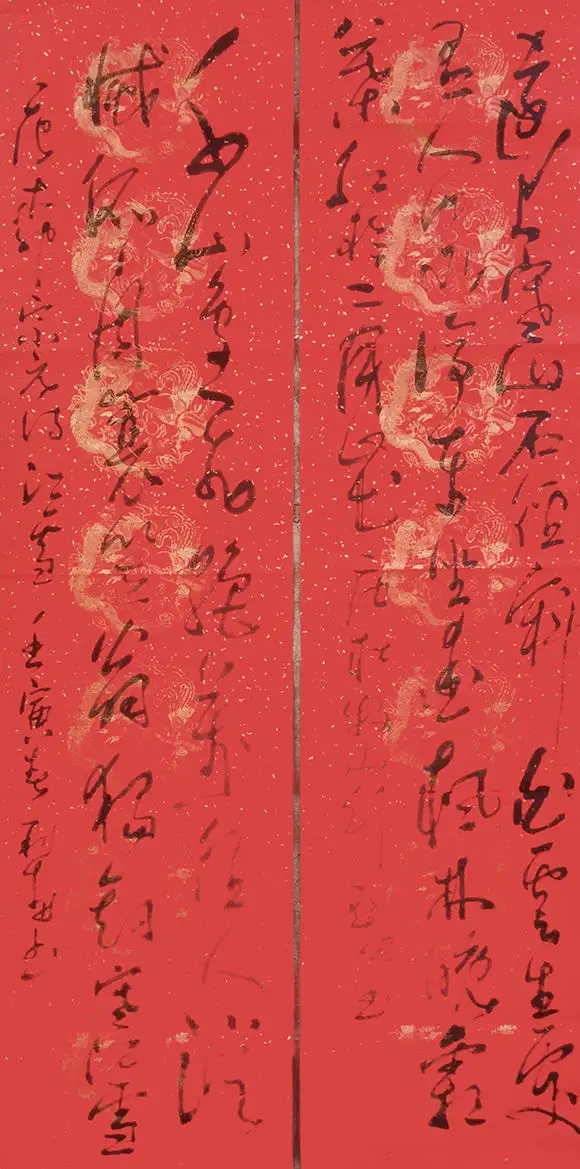 遠上寒山石徑斜白雲生處
有人家停車坐愛楓林晚霜
葉紅於二月花唐杜牧山行書
千山鳥飛絕萬徑人蹤
滅孤舟蓑笠翁獨釣寒江雪
唐柳宗元詩江雪壬寅春書